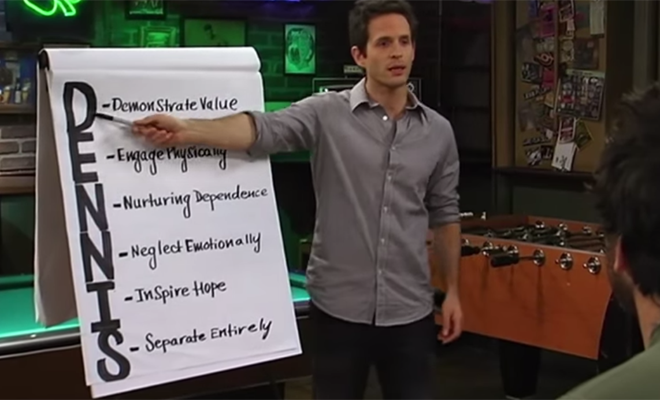 D - Demonstrate Value
E - Engage Physically
N - Nurturing Dependence
N - Neglect Emotionally
I - Inspire Hope
S - Separate Entirely